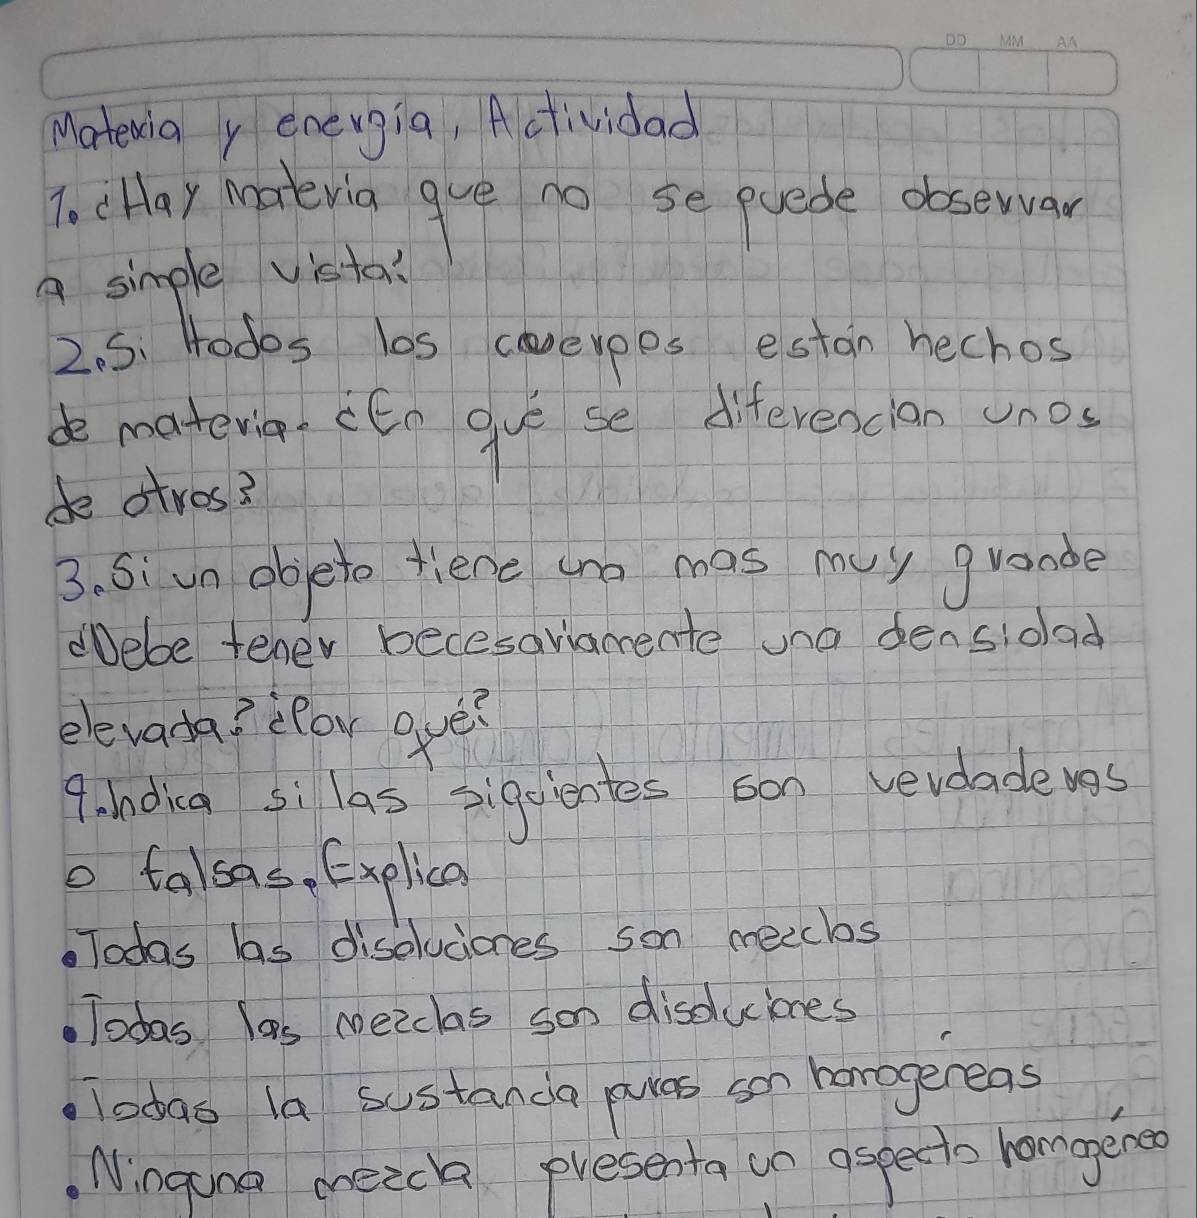 DD MM AA
Materia y energía, Actividad
1. ¿Hay materia que no se puede observar
a simple vista?
2. Si todos los cuerpos están hechos
de materia. ¿En qué se diferencian unos
de otros?
3. Si un objeto tiene una mas muy grande
¿Debe tener becesariamente una densidad
elevada? ¿Por qué?
4. Indica si las siguientes son verdaderas
o falsas. Explica
• Todas las disoluciones son mezclas
• Todas las mezclas son disoluciones
• Todas la sustancia puras son homogéneas
• Ninguna mezcla presenta un aspecto homogéneo